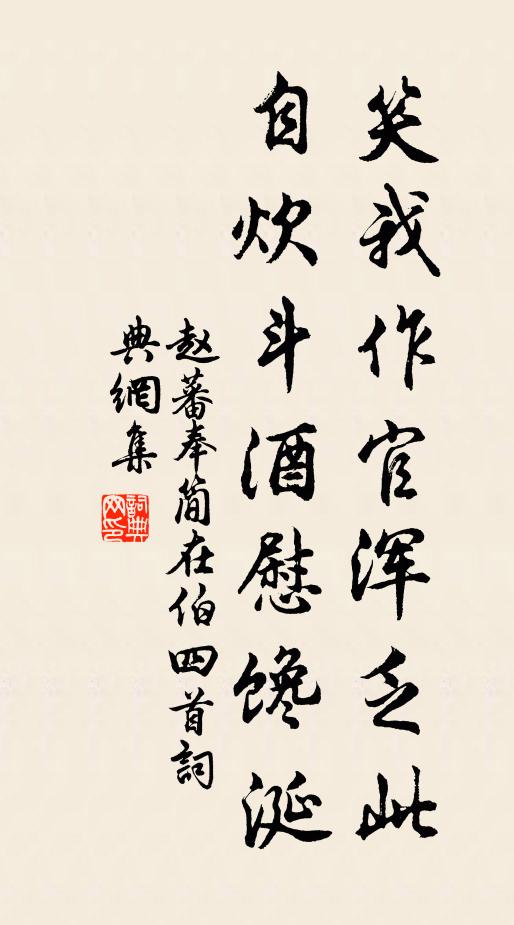 笑我作官浑乏此
自炊斗酒慰馋涎
赵蕃奉简在伯四首詞
典網集
詞典網印